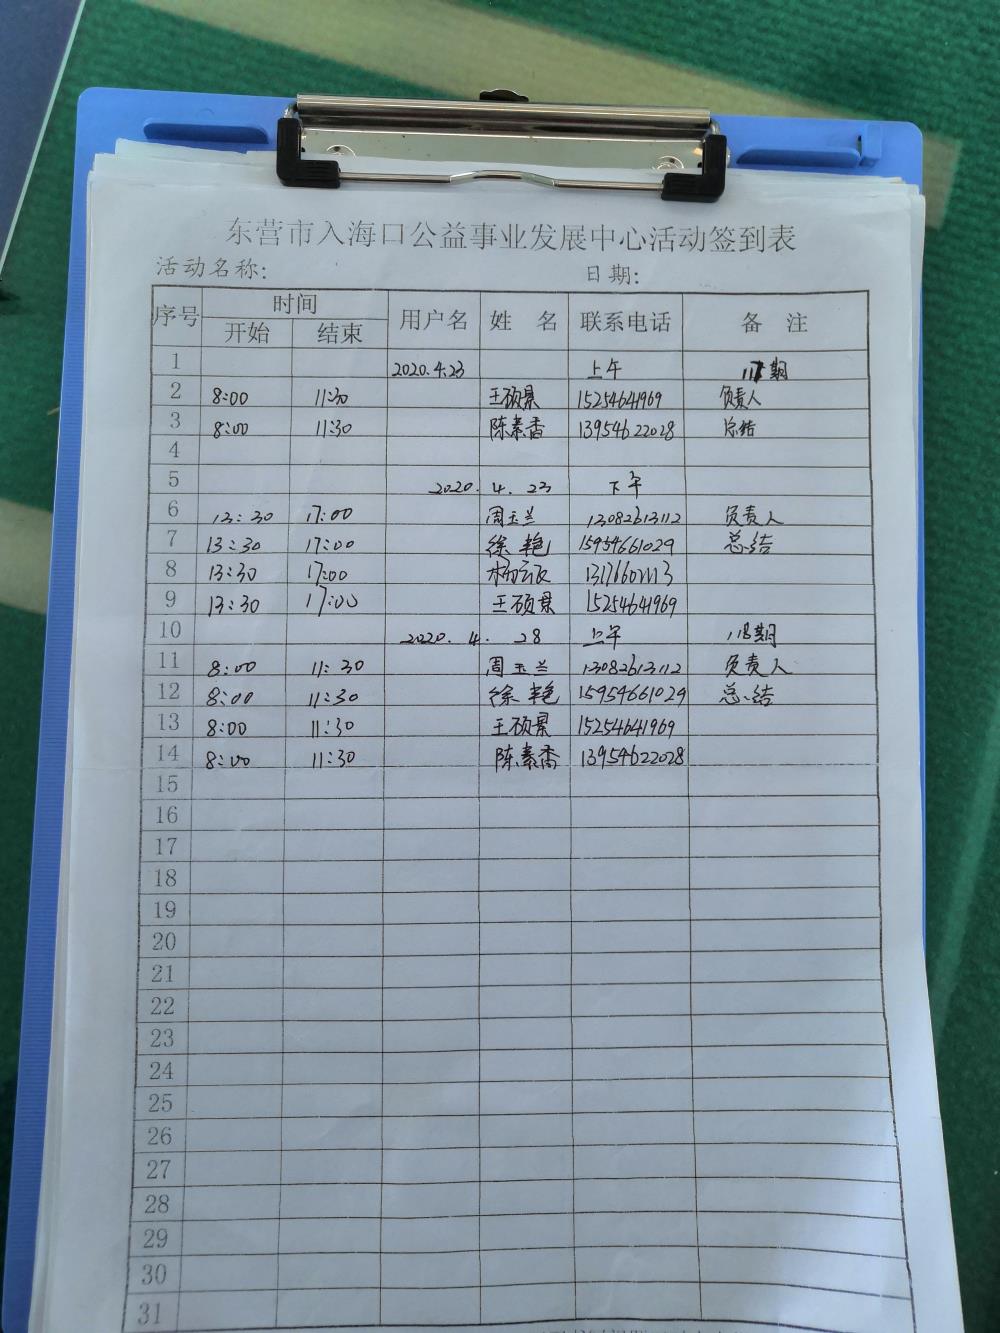 东营市入海口公益事业发展中心活动签到表
活动名称: 日期:
序号 时间 用户名 姓 名 联系电话 备 注
开始 结束
1 2020.4.23 上午 117期
2 8:00 11:30 王硕景 15254641969 负责人
3 8:00 11:30 陈素香 13954622028 总结
4
5 2020.4.23 下午
6 13:30 17:00 周玉兰 13082613112 负责人
7 13:30 17:00 徐艳 15954661029 总结
8 13:30 17:00
9 13:30 17:00 王硕景 15254641969
10 2020.4.28 上午 118期
11 8:00 11:30 周玉兰 13082613112 负责人
12 8:00 11:30 徐艳 15954661029 总结
13 8:00 11:30 王硕景 15254641969
14 8:00 11:30 陈素香 13954622028
15
16
17
18
19
20
21
22
23
24
25
26
27
28
29
30
31